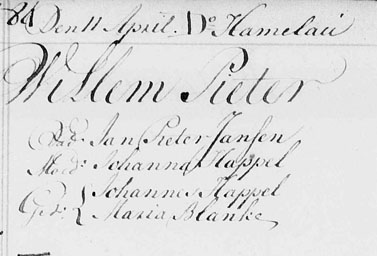 84 Den 11 April. Do Hamelau
Willem Pieter
Vad: Jan Pieter Jansen
Moed: Johanna Happel
Johannes Happel
Get: { Maria Blanke